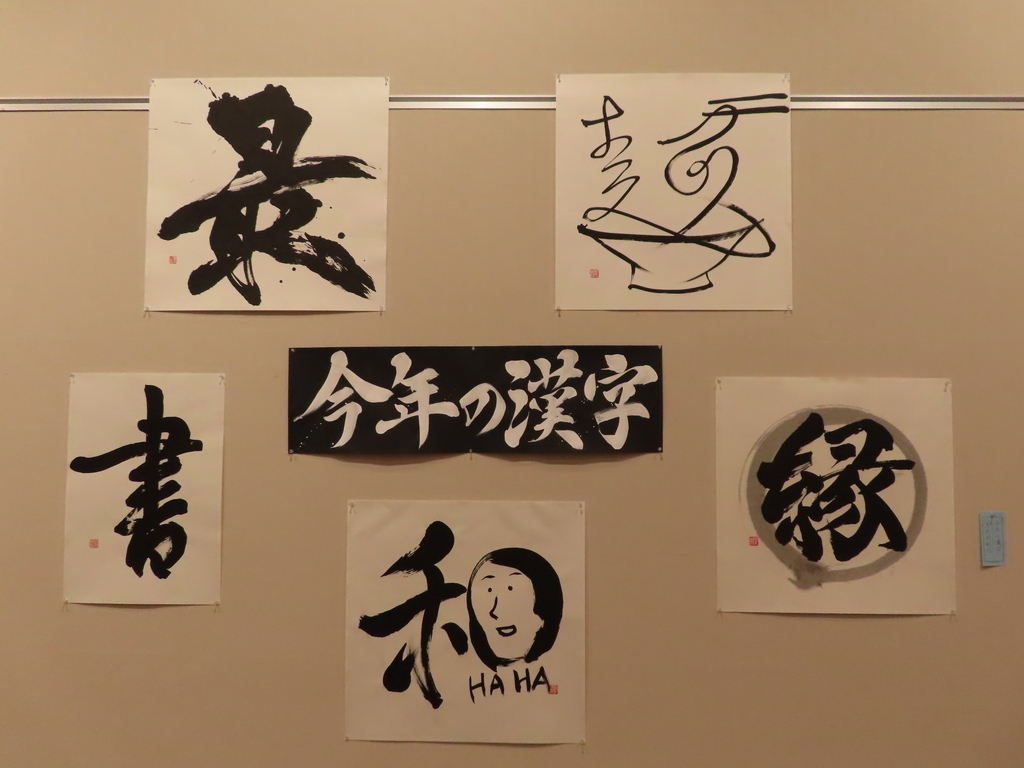 最
麺
今年の漢字
書
縁
和
HA HA